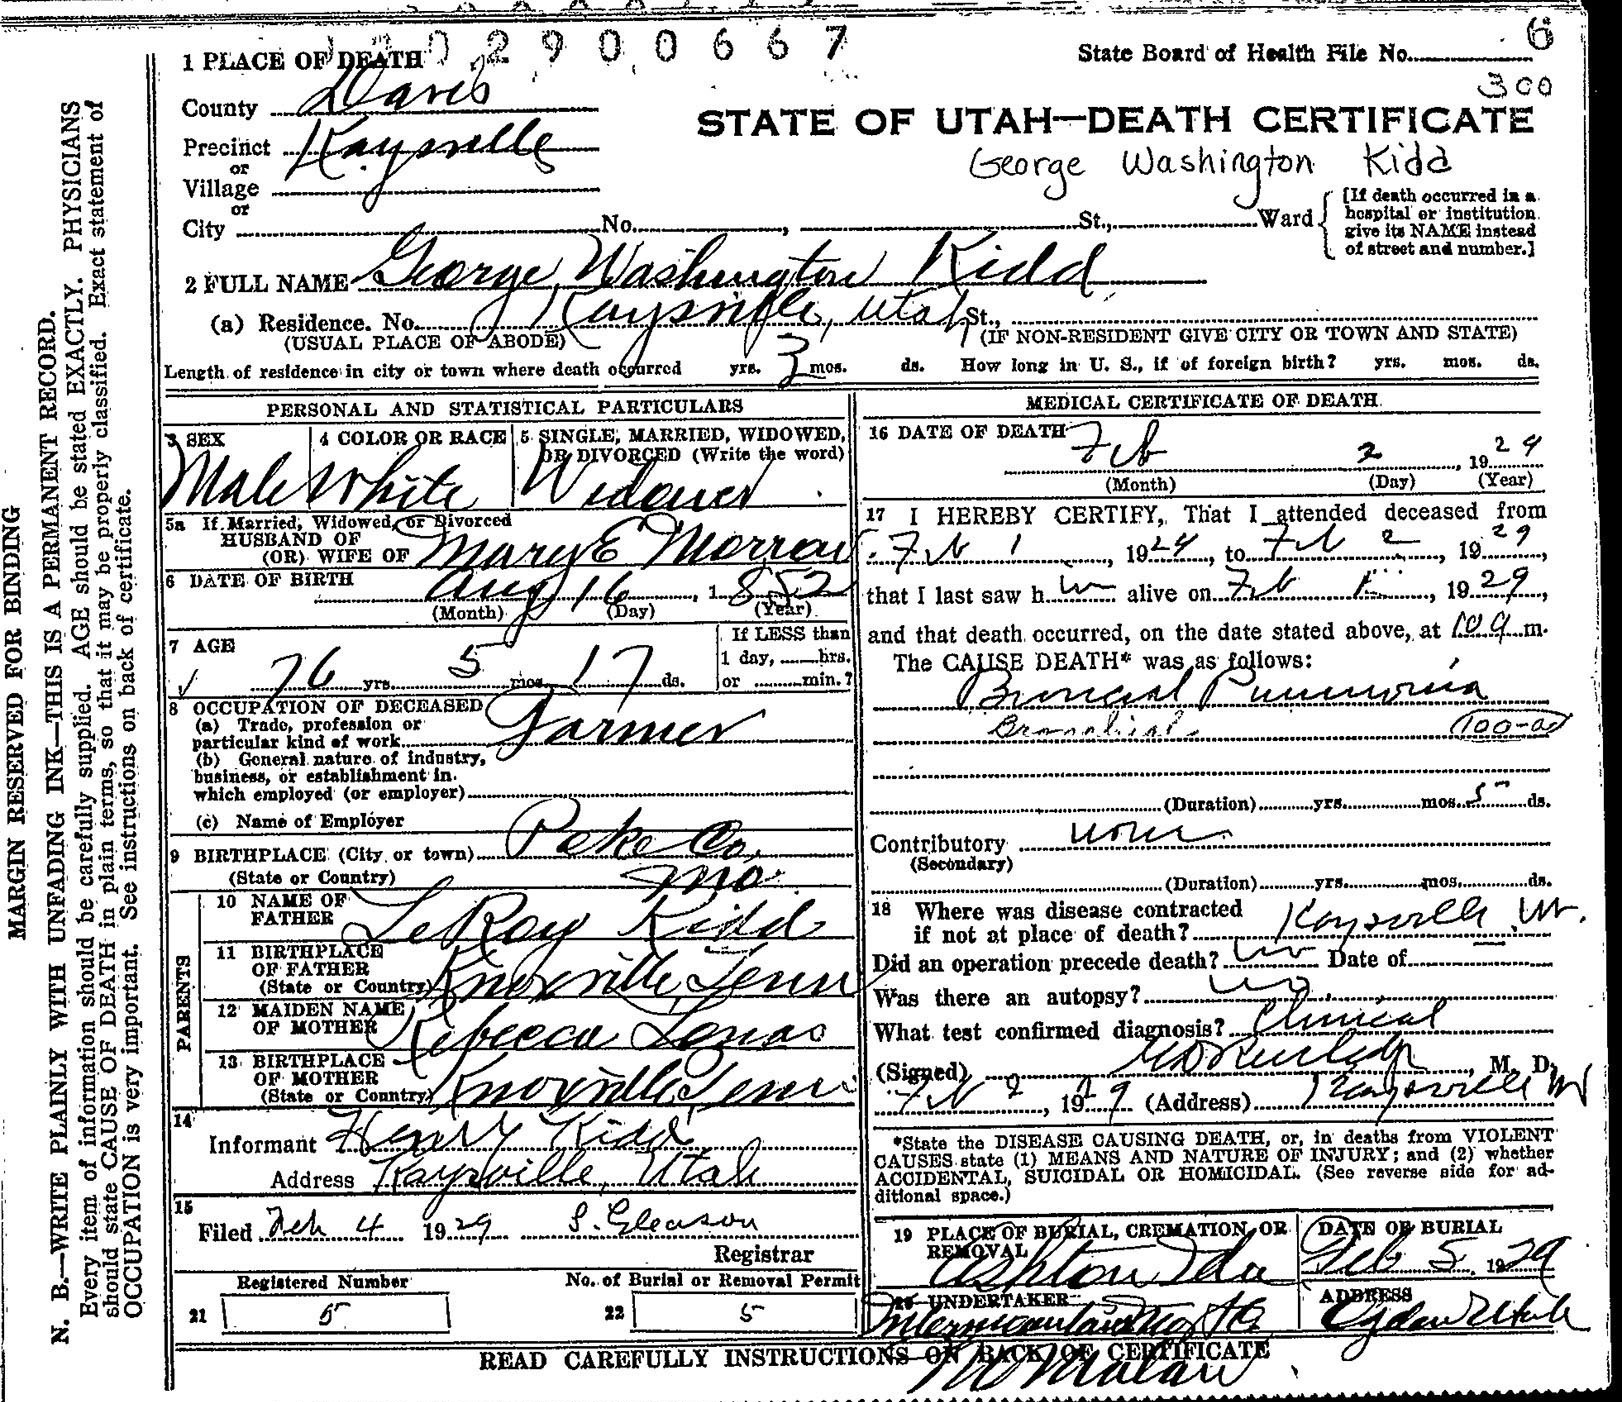 2900667
1 PLACE OF DEATH
State Board of Health File No. 6
300
County Davis
STATE OF UTAH—DEATH CERTIFICATE
Precinct Kaysville
George Washington Kidd
or
Village
or
City No. , St., Ward
[If death occurred in a hospital or institution give its NAME instead of street and number.]
2 FULL NAME George Washington Kidd
(a) Residence. No. Kaysville, Utah St.,
(USUAL PLACE OF ABODE) (IF NON-RESIDENT GIVE CITY OR TOWN AND STATE)
Length of residence in city or town where death occurred yrs. 3 mos. ds. How long in U. S., if of foreign birth? yrs. mos. ds.
PERSONAL AND STATISTICAL PARTICULARS
3 SEX
Male
4 COLOR OR RACE
White
5 SINGLE, MARRIED, WIDOWED, OR DIVORCED (Write the word)
Widower
5a If Married, Widowed, or Divorced
HUSBAND OF
(OR) WIFE OF Mary E Morrow
6 DATE OF BIRTH Aug 16, 1852
(Month) (Day) (Year)
7 AGE
76 yrs. 5 mos. 17 ds.
If LESS than
1 day, hrs.
or min.?
8 OCCUPATION OF DECEASED
(a) Trade, profession or
particular kind of work Farmer
(b) General nature of industry,
business, or establishment in
which employed (or employer)
(c) Name of Employer
9 BIRTHPLACE (City or town) Peke Co,
(State or Country) Mo.
PARENTS
10 NAME OF FATHER LeRoy Kidd
11 BIRTHPLACE OF FATHER
(State or Country) Knoxville, Tenn
12 MAIDEN NAME OF MOTHER Rebecca
13 BIRTHPLACE OF MOTHER
(State or Country) Knoxville, Tenn
14
Informant Henry Kidd
Address Kaysville, Utah
15
Filed Feb 4 1929 S. Gleason
Registrar
Registered Number
21 5
No. of Burial or Removal Permit
22 5
MEDICAL CERTIFICATE OF DEATH
16 DATE OF DEATH Feb 2, 1929
(Month) (Day) (Year)
17 I HEREBY CERTIFY, That I attended deceased from
Feb 1, 1929, to Feb 2, 1929,
that I last saw h im alive on Feb 1, 1929,
and that death occurred, on the date stated above, at 10 a m.
The CAUSE DEATH* was as follows:
Broncial Pnumonia
Bronchial 100-a
(Duration) yrs. mos. 5 ds.
Contributory none
(Secondary)
(Duration) yrs. mos. ds.
18 Where was disease contracted
if not at place of death? Kaysville Ut.
Did an operation precede death? no Date of
Was there an autopsy? no
What test confirmed diagnosis? Clinical
(Signed) , M. D.
Feb 2, 1929 (Address) Kaysville Ut
*State the DISEASE CAUSING DEATH, or, in deaths from VIOLENT
CAUSES state (1) MEANS AND NATURE OF INJURY; and (2) whether
ACCIDENTAL, SUICIDAL OR HOMICIDAL. (See reverse side for ad-
ditional space.)
19 PLACE OF BURIAL, CREMATION, OR REMOVAL
Ashton Ida
DATE OF BURIAL
Feb 5, 1929
20 UNDERTAKER
ADDRESS
Ogden Utah
READ CAREFULLY INSTRUCTIONS ON BACK OF CERTIFICATE
MARGIN RESERVED FOR BINDING
N. B.—WRITE PLAINLY WITH UNFADING INK—THIS IS A PERMANENT RECORD.
Every item of information should be carefully supplied. AGE should be stated EXACTLY. PHYSICIANS
should state CAUSE OF DEATH in plain terms, so that it may be properly classified. Exact statement of
OCCUPATION is very important. See instructions on back of certificate.